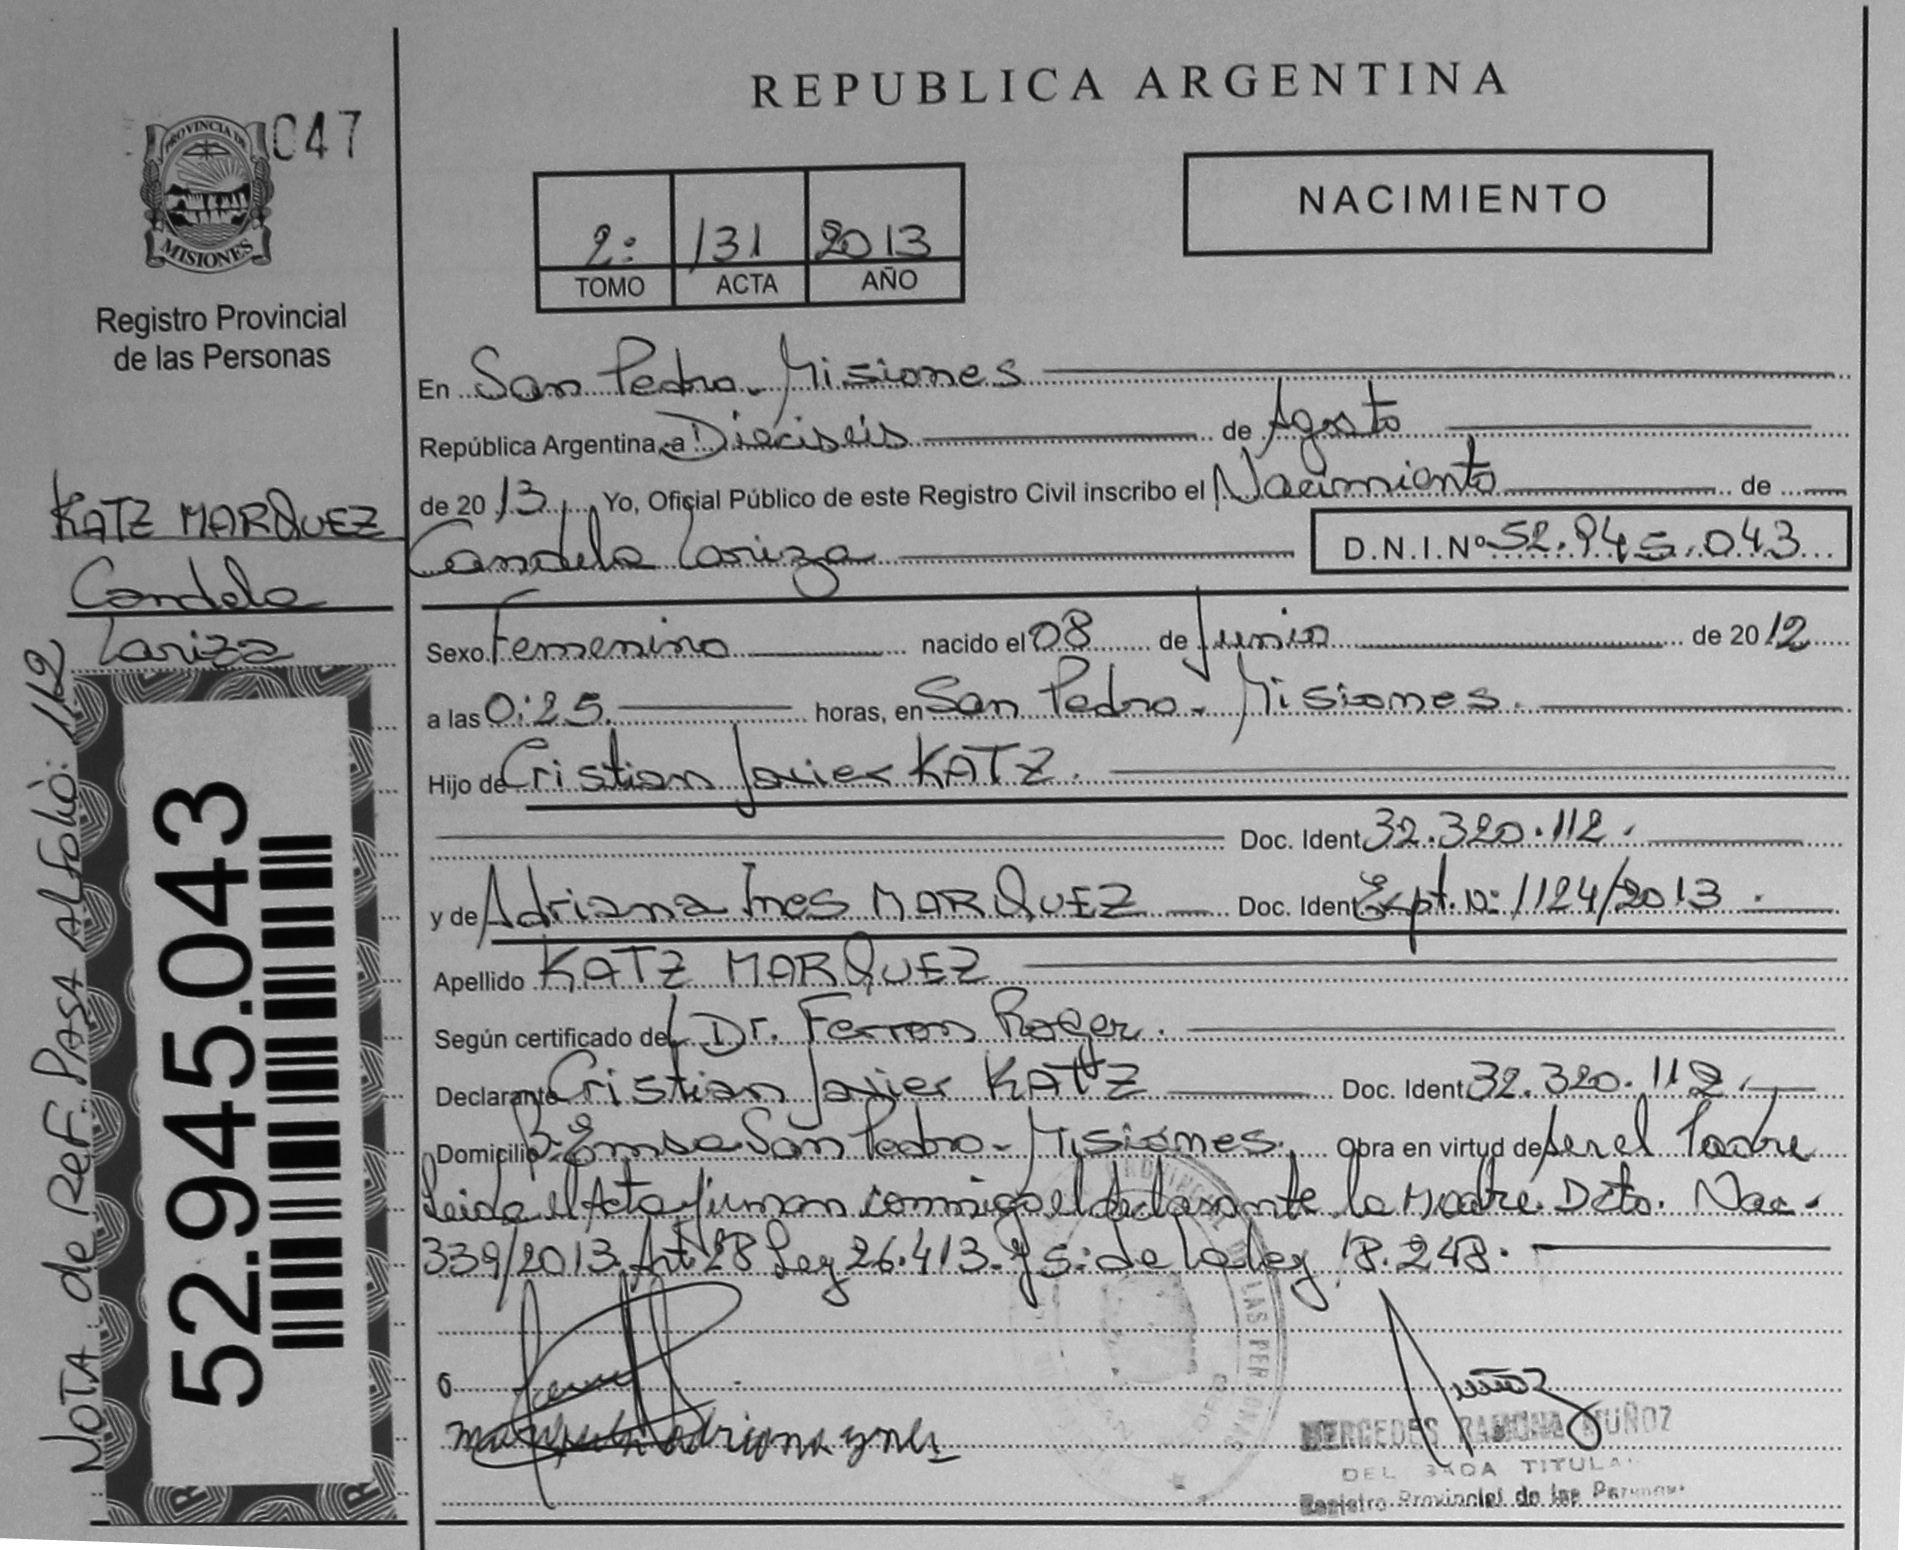 REPUBLICA ARGENTINA
047
PROVINCIA DE
MISIONES
Registro Provincial
de las Personas
NACIMIENTO
2º 131 2013
TOMO ACTA AÑO
En San Pedro - Misiones
República Argentina, a Dieciseis de Agosto
de 2013 Yo, Oficial Público de este Registro Civil inscribo el Nacimiento de
Candela Lariza D.N.I.Nº 52.945.043
KATZ MARQUEZ
Candela
Lariza
Sexo Femenino nacido el 08 de Junio de 2012
a las 0:25 horas, en San Pedro - Misiones.
Hijo de Cristian Javier KATZ.
Doc. Ident 32.320.112.
y de Adriana Ines MARQUEZ Doc. Ident Expt. Nº 1124/2013.
Apellido KATZ MARQUEZ
Según certificado del Dr. Ferron Roger.
Declarante Cristian Javier KATZ Doc. Ident 32.320.112.
Domicilio Bº Emsa San Pedro - Misiones. Obra en virtud de ser el Padre
Leida el Acta firman conmigo el declarante la Madre. Dcto. Nac.
339/2013. Art. 28 Ley 26.413. y 5º de la ley 18.248.
NOTA de Ref. PASA al Folio: 112
52.945.043
Adriana ynes
Muñoz
MERCEDES RAMONA MUÑOZ
TITULAR
Registro Provincial de las Personas